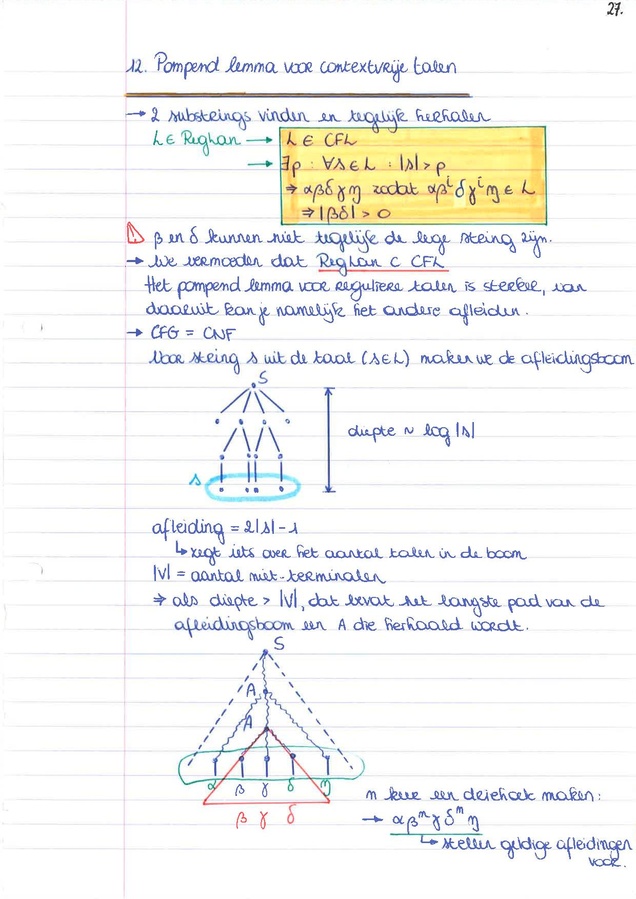 27.
12. Pompend lemma voor contextvrije talen
→ 2 substrings vinden en tegelijk herhalen
L ∈ Reglan → L ∈ CFL
→ ∃p : ∀s ∈ L : |s| > p
⇒ αβδγη zodat αβⁱδγⁱη ∈ L
⇒ |βδ| > 0
! β en δ kunnen niet tegelijk de lege string zijn.
→ We vermoeden dat Reglan ⊂ CFL
Het pompend lemma voor reguliere talen is sterker, van
daaruit kan je namelijk het andere afleiden.
→ CFG = CNF
Voor string s uit de taal (s∈L) maken we de afleidingsboom
S
diepte ~ log|s|
s
afleiding = 2|s|-1
↳ zegt iets over het aantal talen in de boom
|V| = aantal niet-terminalen
⇒ als diepte > |V|, dat bevat het langste pad van de
afleidingsboom een A die herhaald wordt.
S
A
A
α β γ δ η
β γ δ
n keer een driehoek maken:
→ αβⁿγδⁿη
↳ stellen geldige afleidingen
voor.